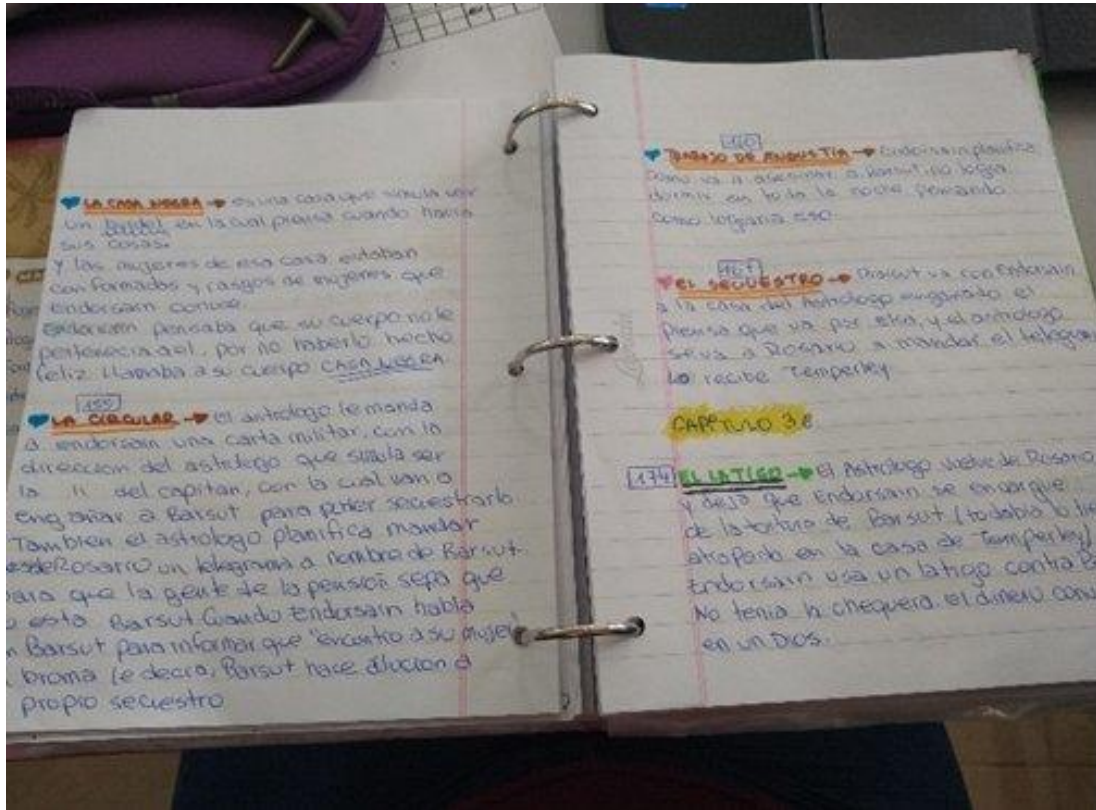 LA CASA NEGRA → es una casa que simula ser
un Burdel en la cual piensa cuando hacia
sus cosas.
Y las mujeres de esa casa estaban
conformadas y rasgos de mujeres que
Endorsain conoce.
Endorsain pensaba que su cuerpo no le
pertenecia a el, por no haberlo hecho
feliz. Llamaba a su cuerpo CASA NEGRA
155
LA CIRCULAR → El astrologo le manda
a endorsain una carta militar, con la
direccion del astrologo que simula ser
la del capitan, con la cual van a
engañar a Barsut para poder secuestrarlo
Tambien el astrologo planifica mandar
desde Rosario un telegrama a nombre de Barsut
para que la gente de la pension sepa que
esta Barsut. Cuando Endorsain habla
Barsut para informar que encontro a su mujer
broma le decia, Barsut hace alucion a
propio secuestro
160
TRABAJO DE ANGUSTIA → Endorsain planifica
como va a asesinar a Barsut, no logra
dormir en toda la noche pensando
como lograria eso
167
EL SECUESTRO → Barsut va con Endorsain
a la casa del Astrologo engañado el
piensa que va por elsa, y el astrologo
se va a Rosario a mandar el telegrama
Lo recibe Temperley
CAPITULO 3
174 EL LATIGO → El Astrologo vuelve de Rosario
y deja que Endorsain se encargue
de la tortura de Barsut (todabia lo tie
atrapado en la casa de Temperley)
Endorsain usa un latigo contra B
No tenia la chequera. el dinero conv
en un Dios.